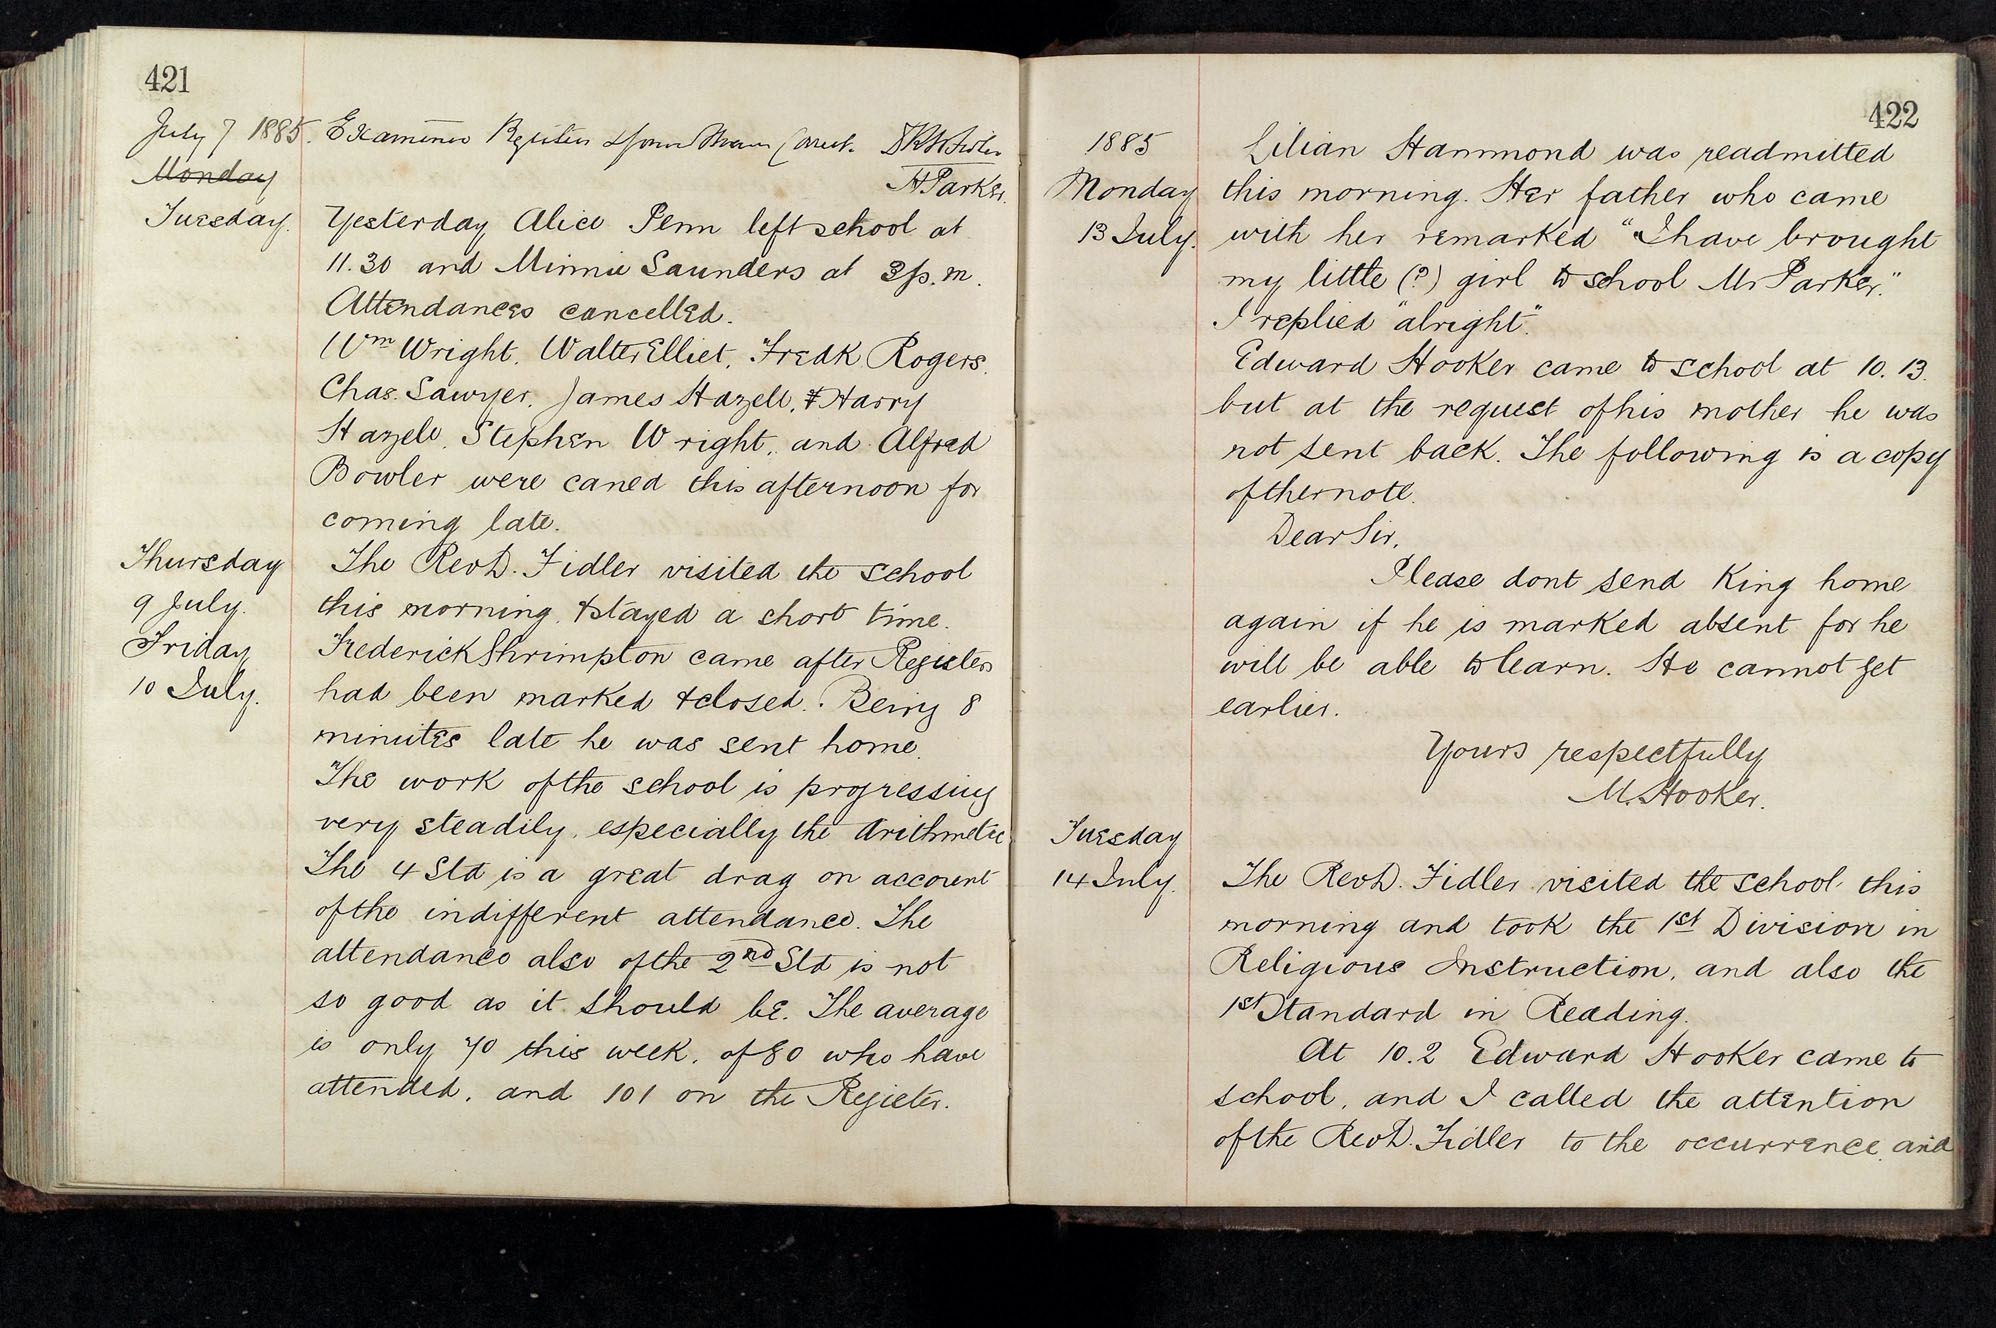 421
July 7 1885. Examined Registers & found them Correct.
H. Parker.
Monday
Tuesday. Yesterday Alice Penn left school at
11.30 and Minnie Saunders at 3 p.m.
Attendances cancelled.
Wm Wright. Walter Elliet. Fredk Rogers.
Chas. Sawyer. James Hazell, & Harry
Hazell, Stephen Wright, and Alfred
Bowler were caned this afternoon for
coming late.
Thursday The Revd. Fidler visited the school
9 July. this morning, & stayed a short time.
Friday Frederick Shrimpton came after Registers
10 July. had been marked & closed. Being 8
minutes late he was sent home.
The work of the school is progressing
very steadily, especially the Arithmetic
The 4 Std is a great drag on account
of the indifferent attendance. The
attendance also of the 2nd Std is not
so good as it should be. The average
is only 70 this week, of 80 who have
attended, and 101 on the Register.
422
1885 Lilian Hammond was readmitted
Monday this morning. Her father who came
13 July. with her remarked "I have brought
my little (?) girl to school Mr Parker."
I replied "alright".
Edward Hooker came to school at 10.13.
but at the request of his mother he was
not sent back. The following is a copy
of the note.
Dear Sir,
Please dont send King home
again if he is marked absent for he
will be able to learn. He cannot get
earlier.
Yours respectfully
M. Hooker.
Tuesday
14 July. The Revd. Fidler visited the school this
morning and took the 1st Division in
Religious Instruction, and also the
1st Standard in Reading.
At 10.2 Edward Hooker came to
school, and I called the attention
of the Revd. Fidler to the occurrence and